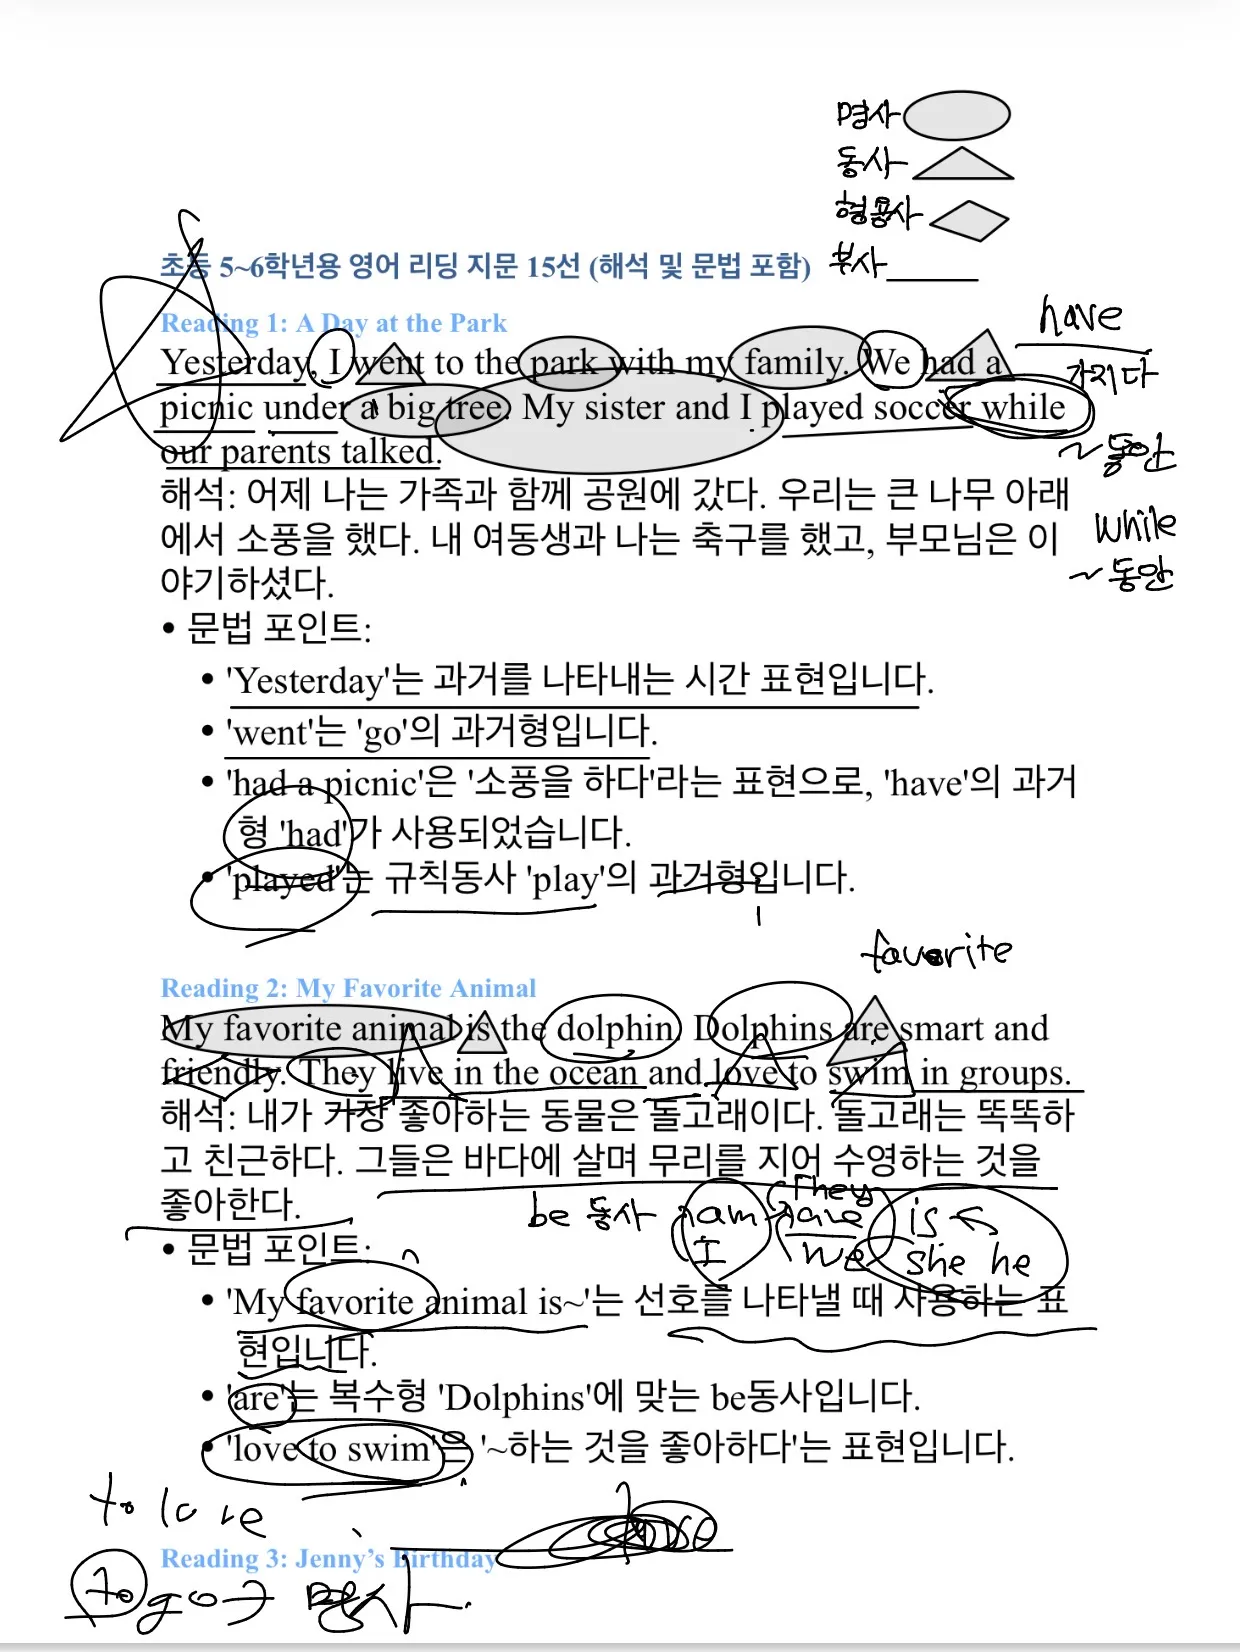 명사
동사
형용사
부사
초등 5~6학년용 영어 리딩 지문 15선 (해석 및 문법 포함)
Reading 1: A Day at the Park
have
가지다
Yesterday, I went to the park with my family. We had a
picnic under a big tree. My sister and I played soccer while
~동안
our parents talked.
해석: 어제 나는 가족과 함께 공원에 갔다. 우리는 큰 나무 아래
while
에서 소풍을 했다. 내 여동생과 나는 축구를 했고, 부모님은 이
~동안
야기하셨다.
• 문법 포인트:
• 'Yesterday'는 과거를 나타내는 시간 표현입니다.
• 'went'는 'go'의 과거형입니다.
• 'had a picnic'은 '소풍을 하다'라는 표현으로, 'have'의 과거
형 'had'가 사용되었습니다.
• 'played'는 규칙동사 'play'의 과거형입니다.
favorite
Reading 2: My Favorite Animal
My favorite animal is the dolphin. Dolphins are smart and
friendly. They live in the ocean and love to swim in groups.
해석: 내가 가장 좋아하는 동물은 돌고래이다. 돌고래는 똑똑하
고 친근하다. 그들은 바다에 살며 무리를 지어 수영하는 것을
좋아한다.
They
be 동사 am are is
I we she he
• 문법 포인트:
• 'My favorite animal is~'는 선호를 나타낼 때 사용하는 표
현입니다.
• 'are'는 복수형 'Dolphins'에 맞는 be동사입니다.
• 'love to swim'은 '~하는 것을 좋아하다'는 표현입니다.
to love
Reading 3: Jenny's Birthday
to go 명사